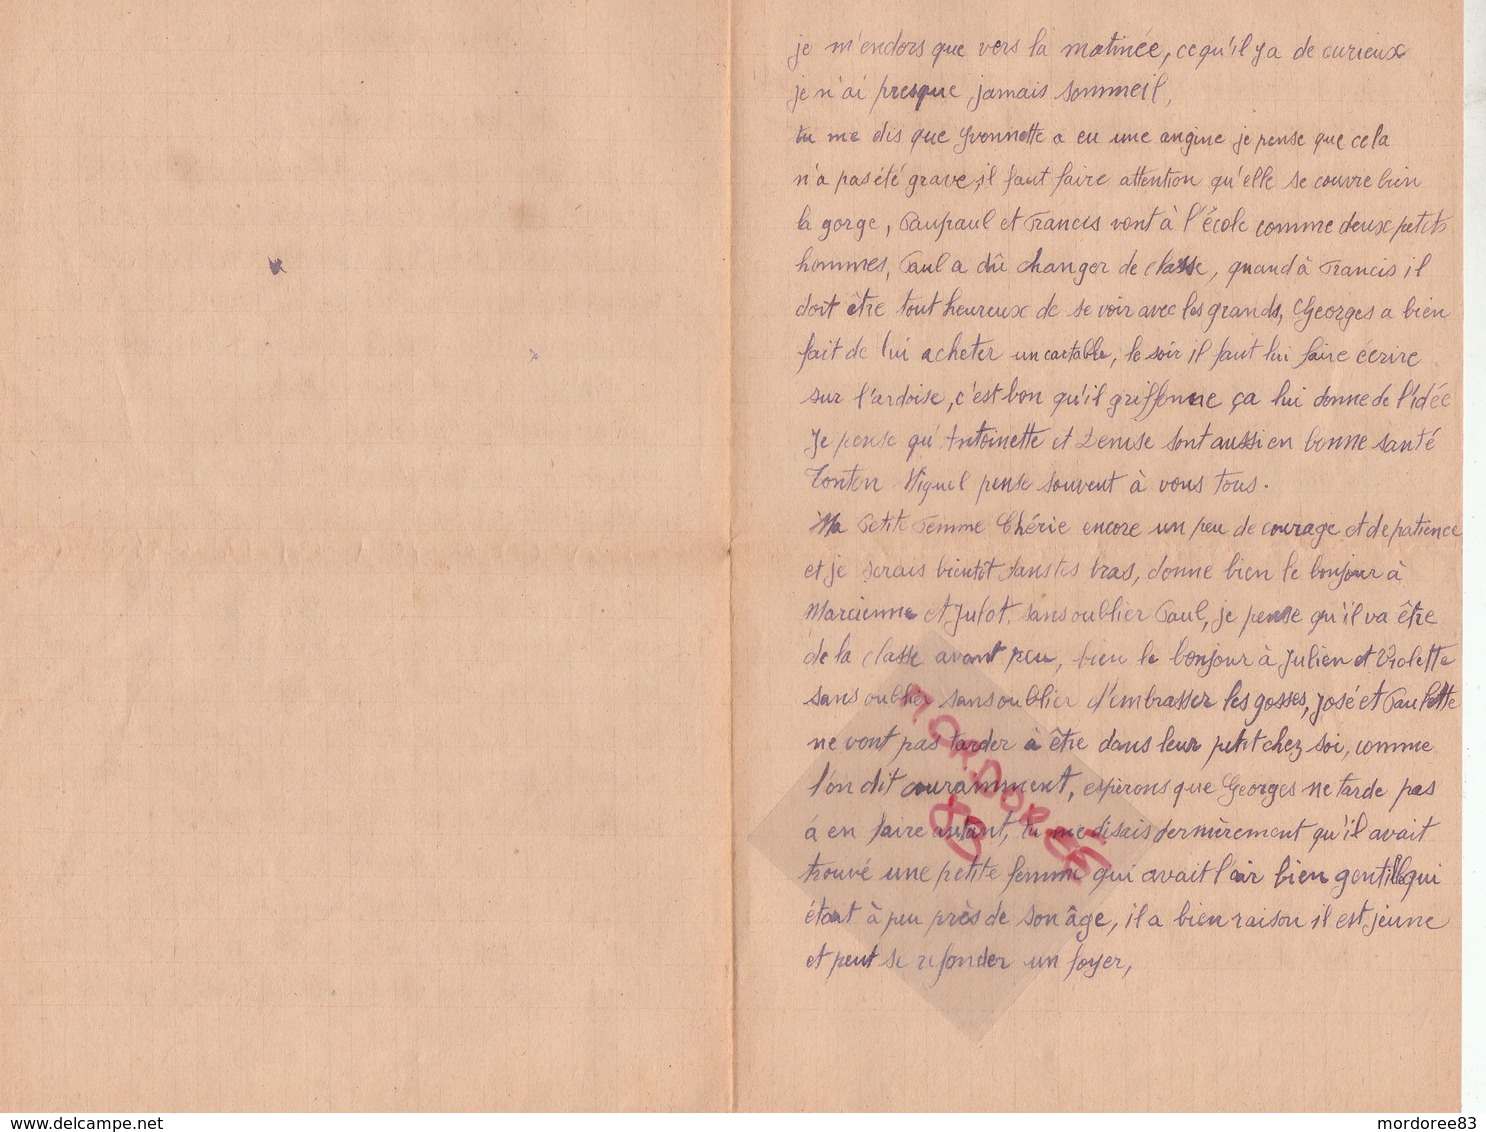 je m'endors que vers la matinée, ce qu'il y a de curieux
je n'ai presque jamais sommeil,
tu me dis que Yvonnette a eu une angine je pense que cela
n'a pas été grave, il faut faire attention qu'elle se couvre bien
la gorge, Paupaul et Francis vont à l'école comme deux petits
hommes, Paul a dû changer de classe, quand à Francis il
doit être tout heureux de se voir avec les grands, Georges a bien
fait de lui acheter un cartable, le soir il faut lui faire écrire
sur l'ardoise, c'est bon qu'il griffonne ça lui donne de l'idée
Je pense qu'Antoinette et Denise sont aussi en bonne santé
Tonton Miguel pense souvent à vous tous.
Ma Petite Femme Chérie encore un peu de courage et de patience
et je serais bientôt dans tes bras, donne bien le bonjour à
Marcienne et Julot, sans oublier Paul, je pense qu'il va être
de la classe avant peu, bien le bonjour à Julien et Violette
sans oublier sans oublier d'embrasser les gosses, José et Paulette
ne vont pas tarder à être dans leur petit chez soi, comme
l'on dit couramment, espérons que Georges ne tarde pas
à en faire autant, tu me disais dernièrement qu'il avait
trouvé une petite femme qui avait l'air bien gentille qui
était à peu près de son âge, il a bien raison il est jeune
et peut se refonder un foyer,
MORDOREE
83
delcampe.net
mordoree83